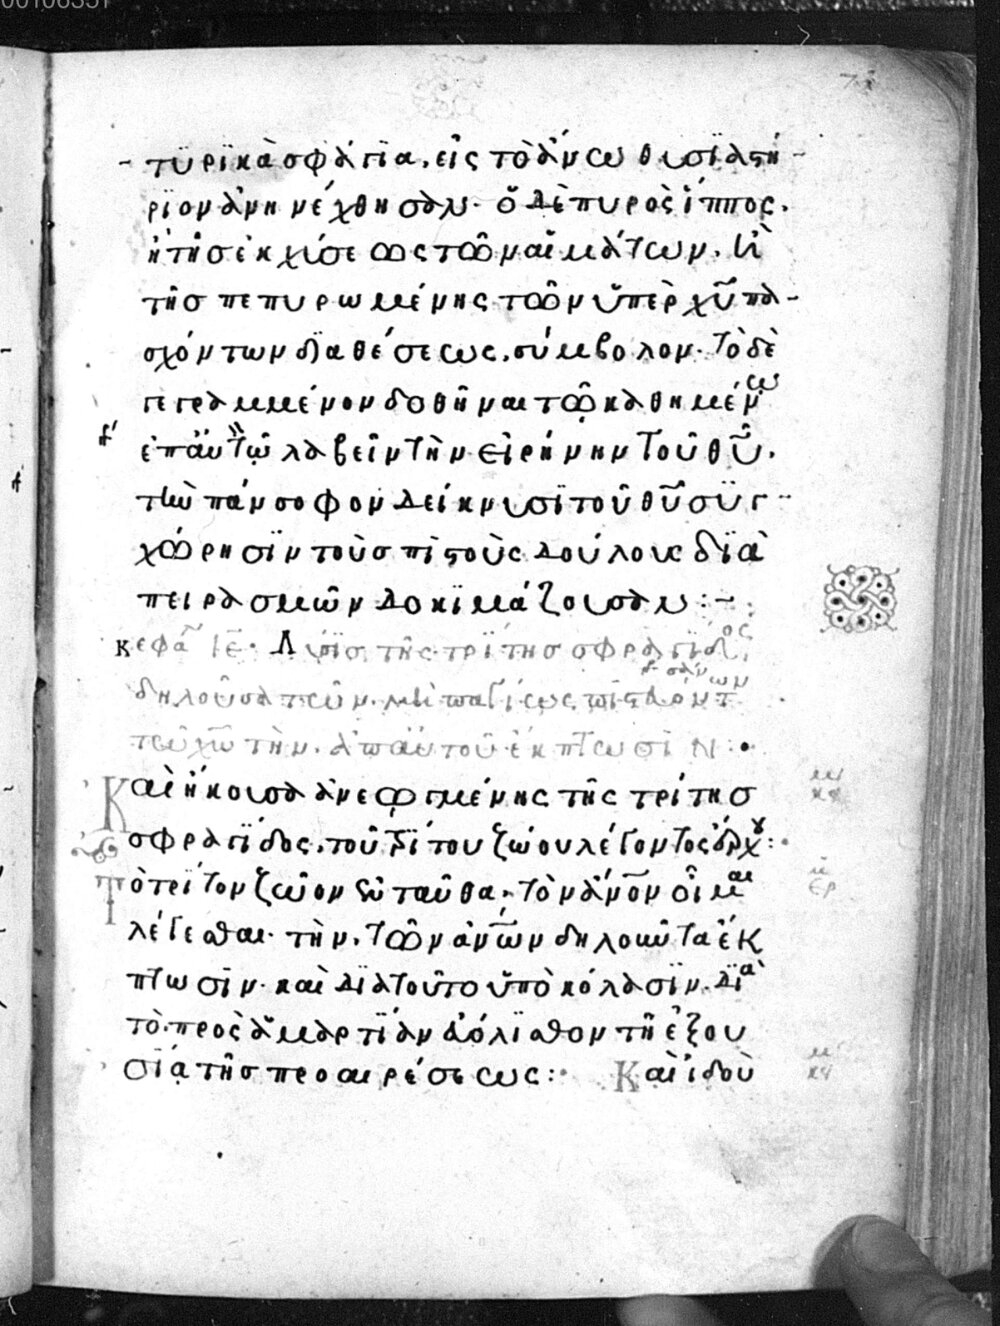 τϋρϊκὰ σφάγϊα. εἰς τὸ ἄνω θυσϊαστή-
ριον ἀνηνέχθησαν· ὁ δὲ πυρὸς ἵππος.
ἢ τῆς ἐκχύσεως τῶν αἱμάτων. ἢ
τῆς πεπυρωμένης τῶν ὑπὲρ χῦ πα-
σχόντων διαθέσεως. σύμβολον· τὸ δὲ
γεγραμμένον δοθῆναι τῷ καθημένω
ἐπ' αὐτῷ λαβεῖν τὴν εἰρήνην τοῦ θῦ.
τὴν πάνσοφον δείκνυσϊ τοῦ θῦ συγ-
χώρησϊν τοὺς πιστοὺς δούλους διὰ
πειρασμῶν δοκϊμάζουσαν :~
κεφα ιε· Λύσϊς τῆς τρίτης σφραγῖδος
δηλοῦσα τῶν
τῶ χῶ τὴν. ἀπ' αὐτοῦ ἔκπτωσιν :
Καὶ ἤκουσα ἀνεῳγμένης τῆς τρίτης
σφραγίδος. τοῦ τρίτου ζώου λέγοντος ἔρχου :
Τὸ τρίτον ζῶον ἐνταῦθα. τὸν ἄνον οἶμαι
λέγεσθαι· τὴν. τῶν ἀνων δηλοῦντα ἔκ
πτωσϊν· καὶ διὰ τοῦτο ὑπὸ κόλασϊν. διὰ
τὸ πρὸς ἁμαρτίαν εὐόλισθον τῆ ἐξου
σίᾳ τῆς προαιρέσεως : Καὶ ἰδοὺ